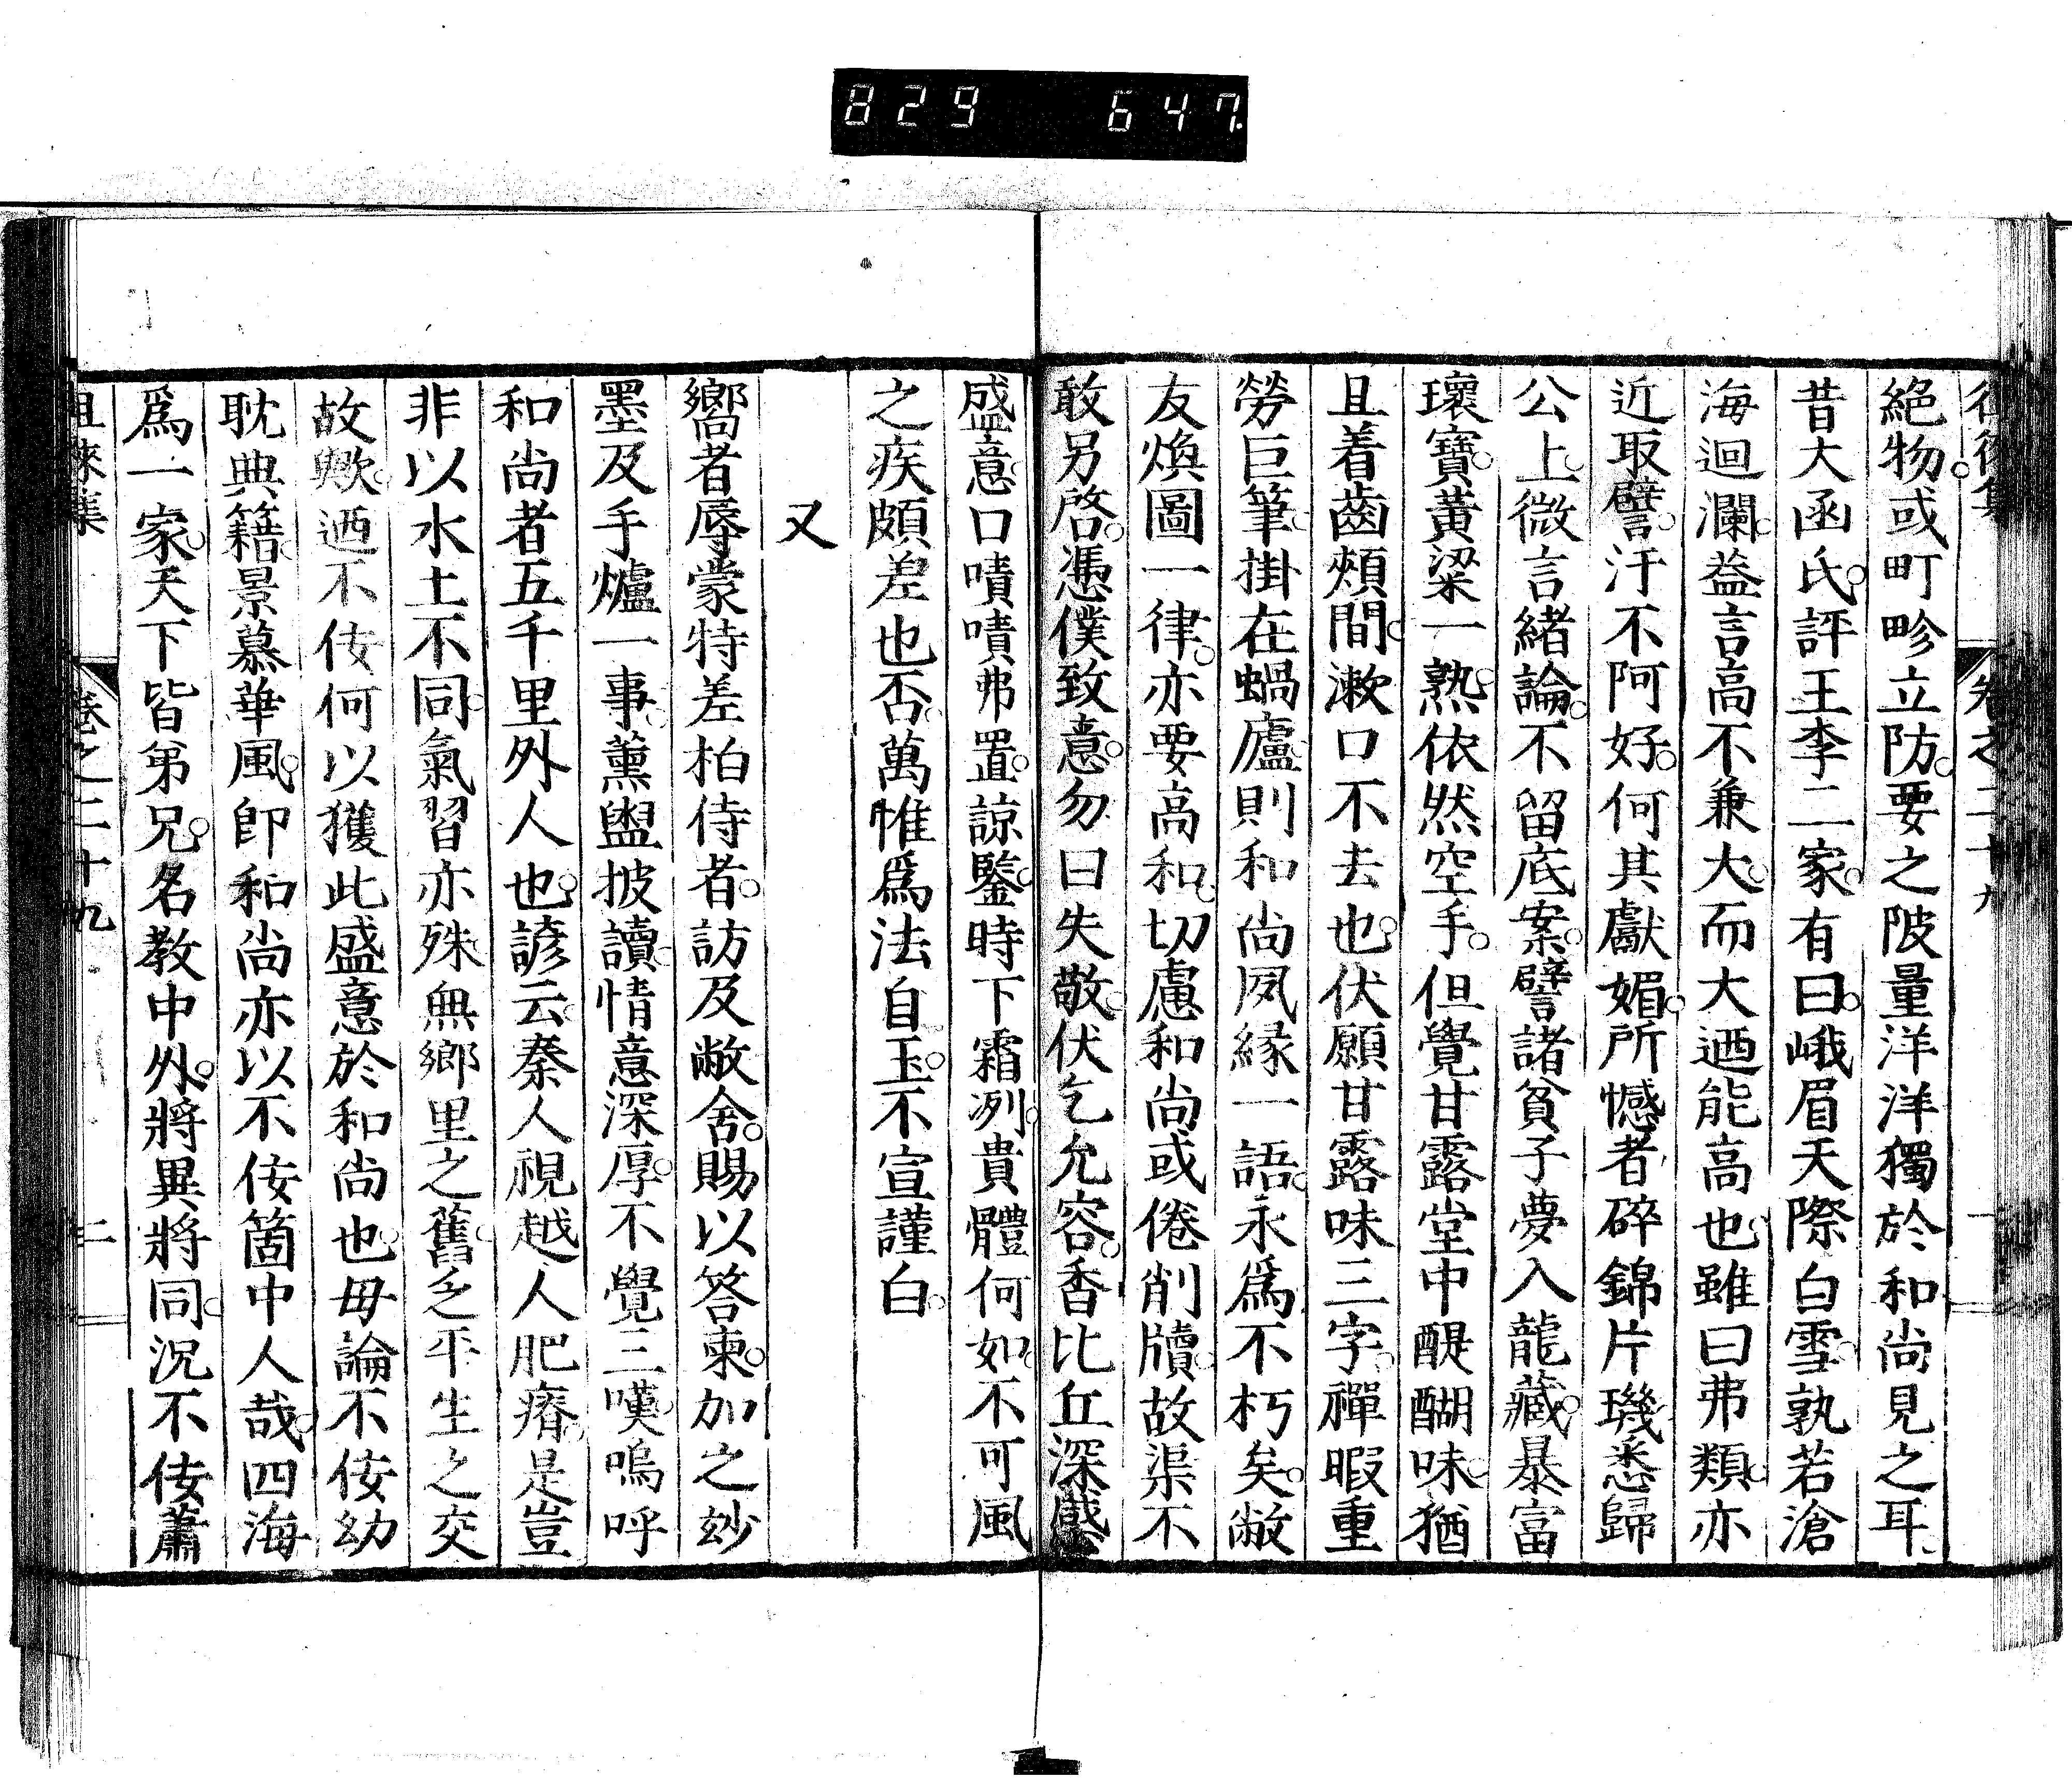 829 647
絕物。或町畛立防。要之陂量洋洋獨於和尚見之耳
昔大函氏。評王李二家。有曰。峨眉天際白雪。孰若滄
海迴瀾。益言高不兼大。而大迺能高也。雖曰弗類。亦
近取譬。汙不阿好。何其獻媚。所憾者碎錦片璣悉歸
公上。微言緒論。不留底案。譬諸貧子夢入龍藏。暴富
瓌寶。黃粱一熟。依然空手。但覺甘露堂中醍醐味。猶
且着齒頰間。漱口不去也。伏願甘露味三字。禪暇重
勞巨筆。掛在蝸廬。則和尚夙緣一語。永爲不朽矣。敝
友煥圖一律。亦要高和。切慮和尚或倦削牘。故渠不
敢另啓。憑僕致意。勿曰失敬。伏乞允容。香比丘深感
盛意。口嘖嘖弗置。諒鑒。時下霜冽。貴體何如。不可風
之疾頗差也否。萬惟爲法自玉。不宣謹白。
又
嚮者辱蒙特差柏侍者。訪及敝舍。賜以答柬。加之玅
墨及手爐一事。薰盥披讀。情意深厚。不覺三嘆。嗚呼
和尚者五千里外人也。諺云。秦人視越人肥瘠。是豈
非以水土不同。氣習亦殊。無鄉里之舊。乏平生之交
故歟。迺不佞何以獲此盛意於和尚也。毋論不佞幼
耽典籍。景慕華風。卽和尚亦以不佞箇中人哉。四海
爲一家。天下皆弟兄。名教中外。將異將同。況不佞蕭
徂徠集 卷之二十九 二